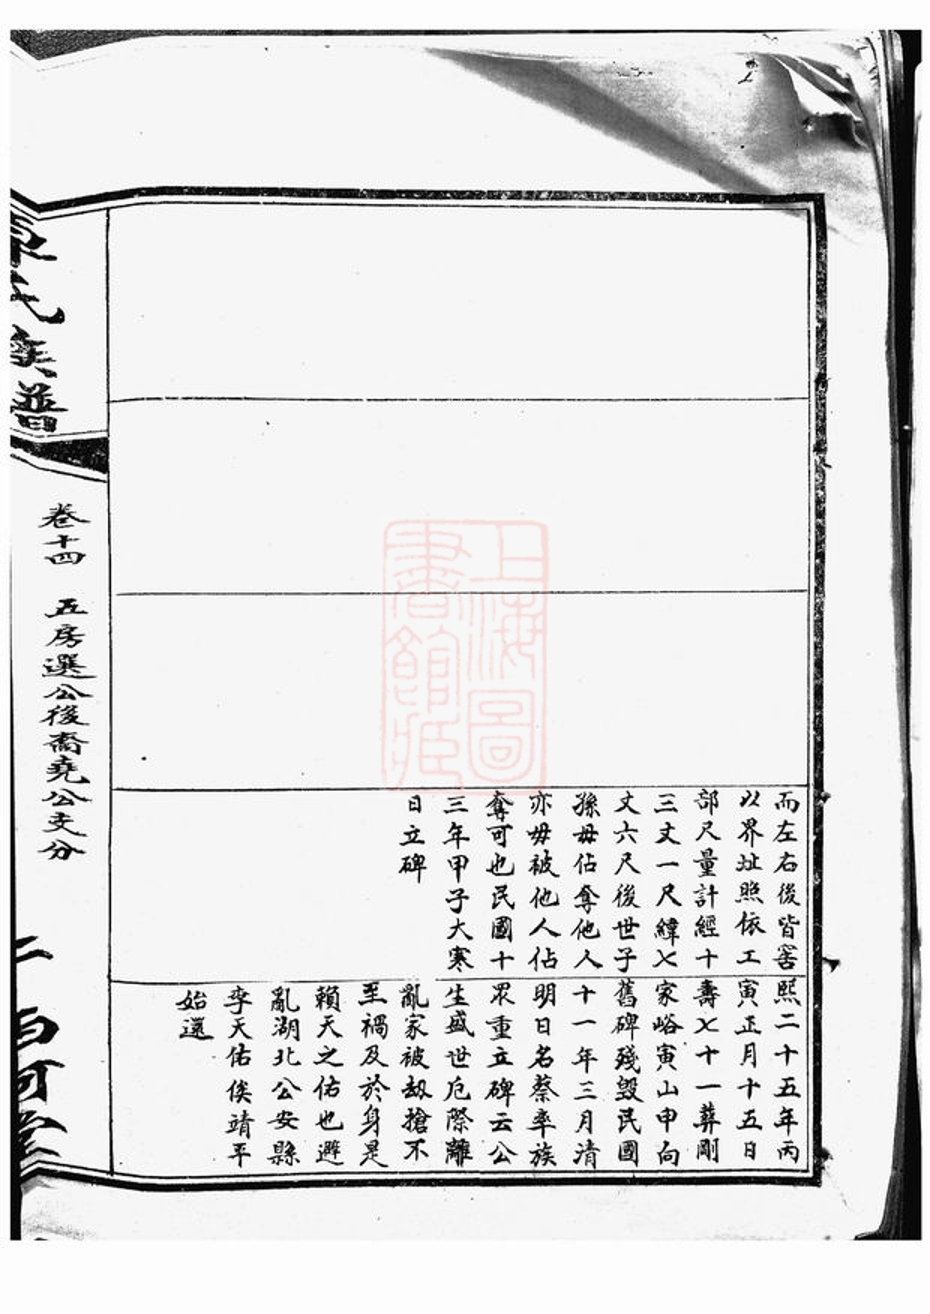 而左右後皆窖
以界址照依工
部尺量計經十
三丈一尺緯七
丈六尺後世子
孫毋佔奪他人
亦毋被他人佔
奪可也民國十
三年甲子大寒
日立碑
熙二十五年丙
寅正月十五日
壽七十一葬剛
家峪寅山申向
舊碑殘毀民國
十一年三月清
明日名蔡率族
眾重立碑云公
生盛世卮際離
亂家被劫搶不
至禍及於身是
賴天之佑也避
亂湖北公安縣
李天佑俟靖平
始還
氏族譜
卷十四 五房選公後裔堯公支分
上海圖書館